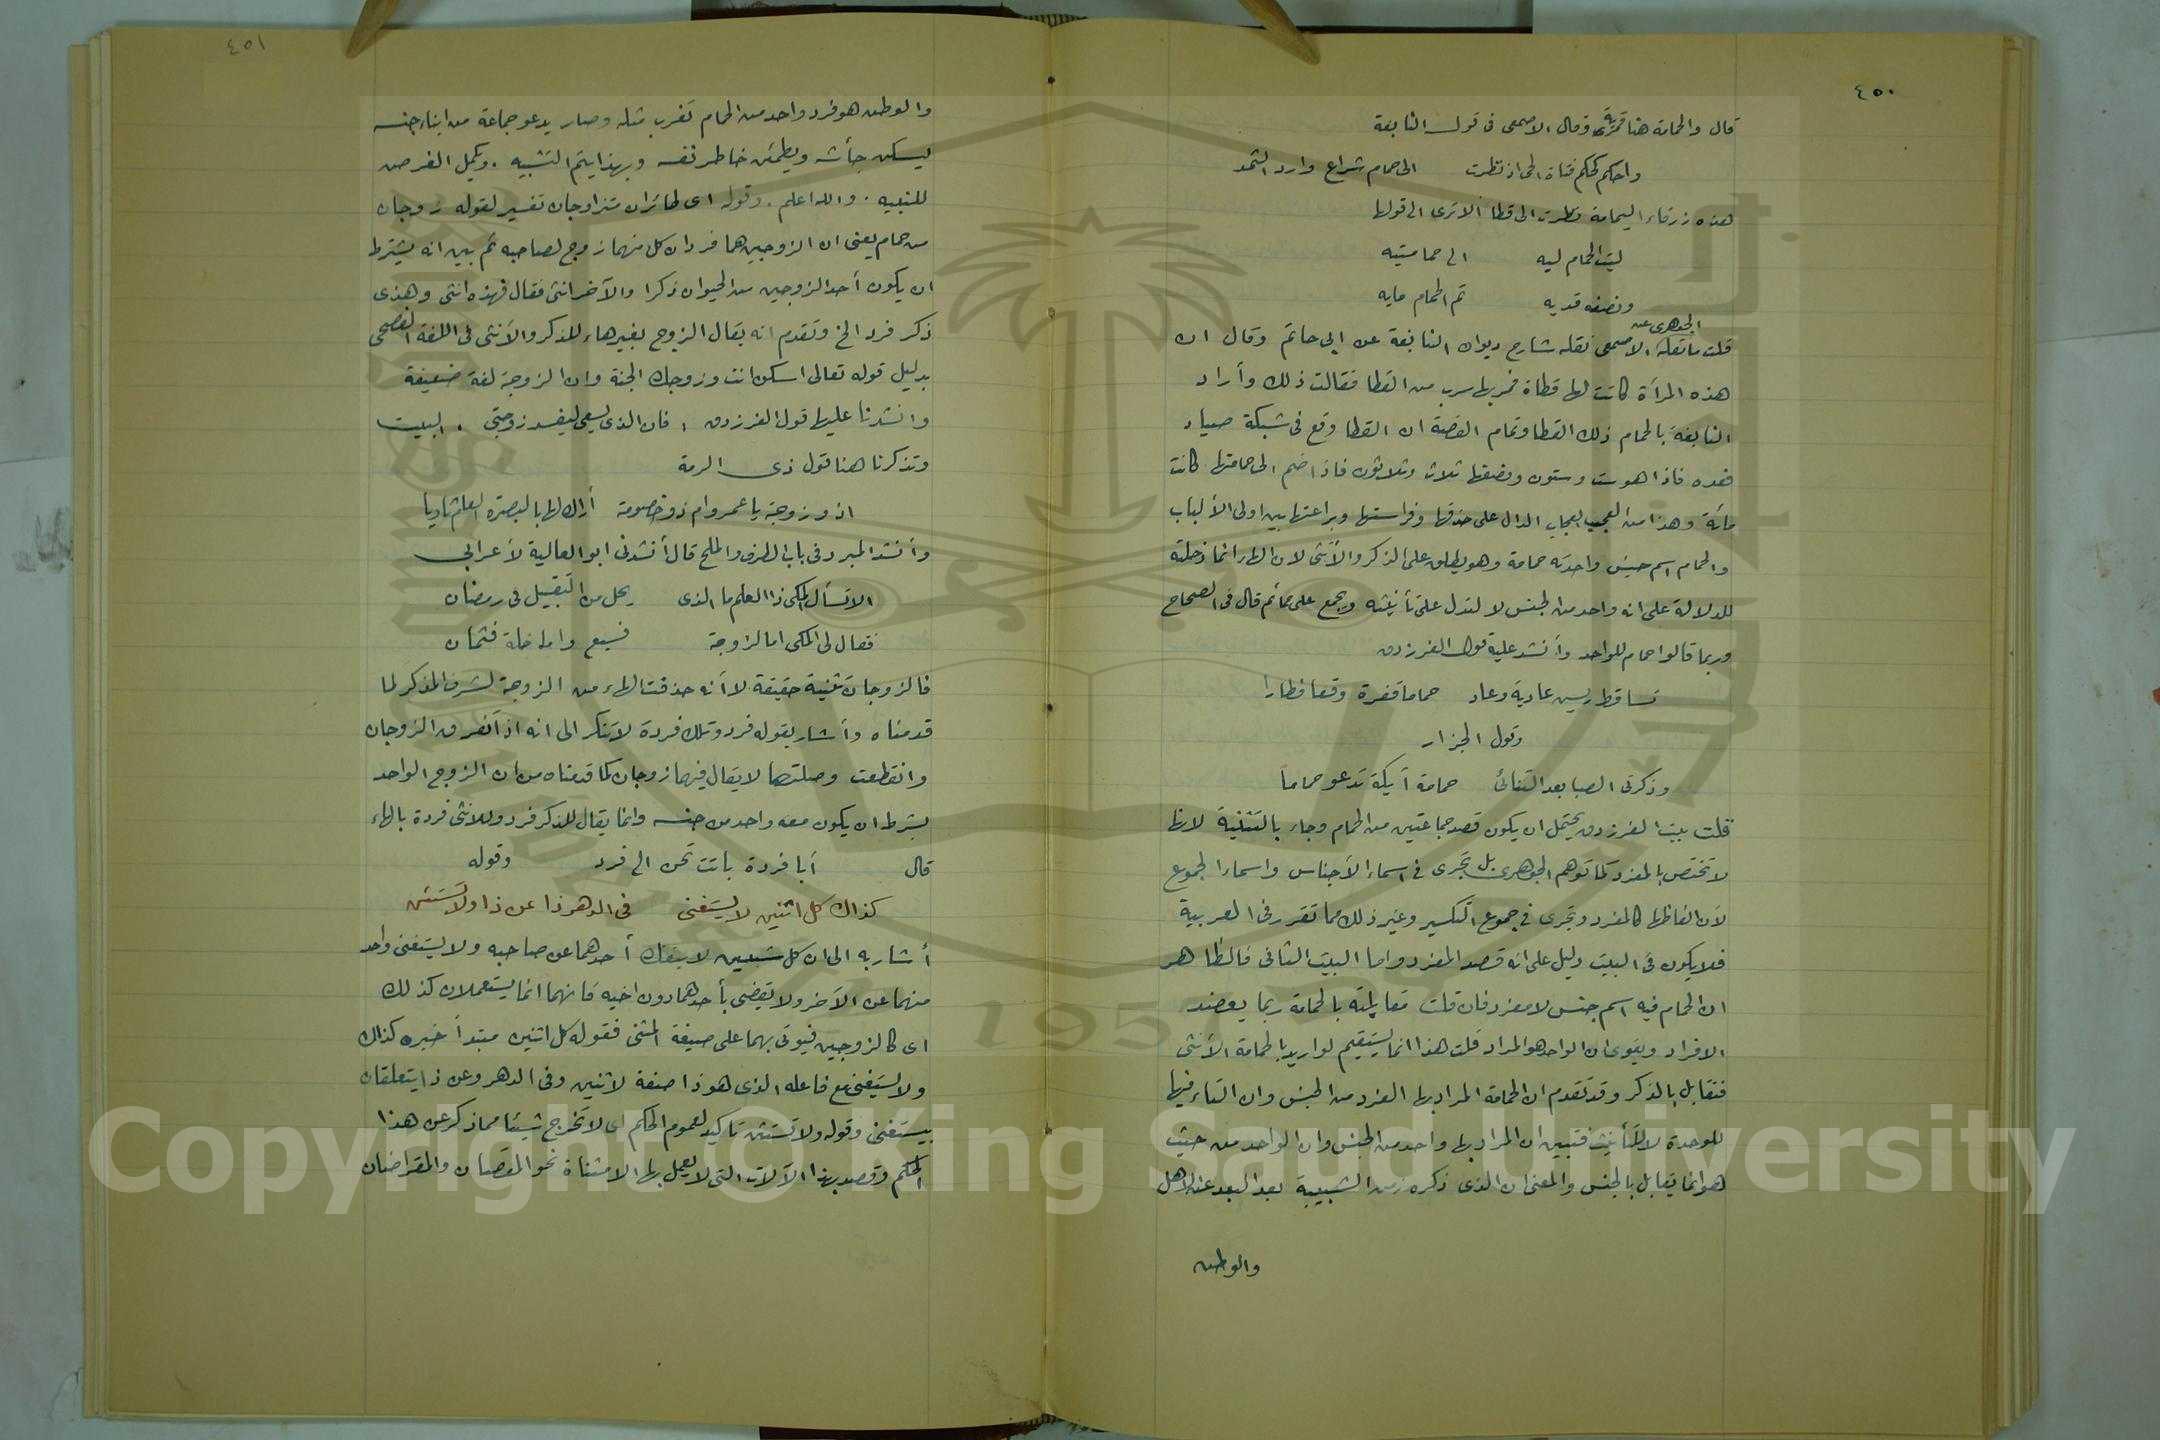 ٤٥٠
قال والحمامة هنا قمرية وقال الاصمعى فى قول النابغة
واحكم كحكم فتاة الحى اذ نظرت الى حمام شراع وارد الثمد
هذه زرقاء اليمامة نظرت الى قطا ألا ترى الى قولها
ليت الحمام ليه الى حمامتيه
ونصفه قديه تم الحمام مايه
قلت ما نقله الجوهرى عن الاصمعى نقله شارح ديوان النابغة عن ابى حاتم وقال ان
هذه المرأة كانت لها قطاة فمر بها سرب من القطا فقالت ذلك وأراد
النابغة بالحمام ذلك القطا وتمام القصة ان القطا وقع فى شبكة صياد
فعده فاذا هو ست وستون ونصفها ثلاث وثلاثون فاذا ضم الى حمامتها كانت
مائة وهذا من العجب العجاب الدال على حذقها وفراستها وبراعتها بين اولى الألباب
والحمام اسم جنس واحدته حمامة وهو يطلق على الذكر والأنثى لان الهاء انما دخلته
للدلالة على انه واحد من الجنس لا لتدل على تأنيثه ويجمع على حمائم قال فى الصحاح
وربما قالوا حمام للواحد وأنشد عليه قول الفرزدق
تساقط ريش عادية وعاد حماما قفرة وقعا فطارا
وقول الجزار
وذكرنى الصبا بعد التنائى حمامة أيكة تدعو حماما
قلت بيت الفرزدق يحتمل ان يكون قصد جماعتين من الحمام وجاء بالتثنية لانها
لا تختص بالمفرد كما توهم الجوهرى بل تجرى فى اسماء الأجناس واسماء الجموع
لأن الفاظها كالمفرد وتجرى فى جموع التكسير وغير ذلك مما تقرر فى العربية
فلا يكون فى البيت دليل على انه قصد المفرد واما البيت الثانى فالظاهر
ان الحمام فيه اسم جنس لا مفرد فان قلت مقابلته بالحمامة ربما يعضد
الافراد ويقوى ان الواحد هو المراد قلت هذا انما يستقيم لو اريد بالحمامة الأنثى
فتقابل بالذكر وقد تقدم ان الحمامة المراد بها الفرد من الجنس وان التاء فيها
للوحدة لا للتأنيث فتبين ان المراد بها واحد من الجنس وان الواحد من حيث
هو انما يقابل بالجنس والمعنى ان الذى ذكره زمن الشبيبة بعد البعد عن الاهل
والوطن
٤٥١
والوطن هو فرد واحد من الحمام تغرب مثله وصار يدعو جماعة من ابناء جنسه
ليسكن جأشه ويطمئن خاطر نفسه وبهذا يتم التشبيه . ويكمل الغرض
للنبيه . والله اعلم . وقوله اى طائران متزاوجان تفسير لقوله زوجان
من حمام يعنى ان الزوجين هما فردان كل منهما زوج لصاحبه ثم بين انه يشترط
ان يكون أحد الزوجين من الحيوان ذكرا والآخر انثى فقال فهذه انثى وهذى
ذكر فرد الخ وتقدم انه يقال الزوج بغير هاء للذكر والأنثى فى اللغة الفصحى
بدليل قوله تعالى اسكن انت وزوجك الجنة وان الزوجة لغة ضعيفة
وانشدنا عليها قول الفرزدق ، فان الذى يسعى ليفسد زوجتى . البيت
وتذكرنا هنا قول ذى الرمة
اذو زوجة يا عمرو ام ذو خصومة أراك لها بالبصرة العام ثاويا
وأنشد المبرد فى باب الظرف والملح قال أنشدنى ابو العالية لأعرابى
الا تسأل المكى ذا العلم ما الذى يحل من التقبيل فى رمضان
فقال لى المكى اما لزوجة فسبع واما خلة فثمان
فالزوجان تثنية حقيقة لا أنه حذفت الهاء من الزوجة لشرف المذكر لما
قدمناه وأشار بقوله فرد وتلك فردة لا تنكر الى انه اذا انفرق الزوجان
وانقطعت وصلتهما لا يقال فيهما زوجان كما قدمناه من ان الزوج الواحد
بشرط ان يكون معه واحد من جنسه وانما يقال للذكر فرد وللانثى فردة بالهاء
قال أيا فردة باتت تحن الى فرد وقوله
كذاك كل اثنين لا يستغنى فى الدهر ذا عن ذا ولا تستثن
أشار به الى ان كل شيئين لا ينفك أحدهما عن صاحبه ولا يستغنى واحد
منهما عن الآخر ولا يقضى بأحدهما دون اخيه فانهما انما يستعملان كذلك
اى كالزوجين فيؤتى بهما على صيغة المثنى فقوله كل اثنين مبتدأ خبره كذاك
ولا يستغنى مع فاعله الذى هو ذا صفة لاثنين وفى الدهر وعن ذا يتعلقان
بيستغنى وقوله ولا تستثن تاكيد لعموم الحكم اى لا تخرج شيئا مما ذكر عن هذا
الحكم وقصد بهذا الآلات التى لا يعمل بها الا مثناة نحو المقصان والمقراضان
Copyright © King Saud University
1957